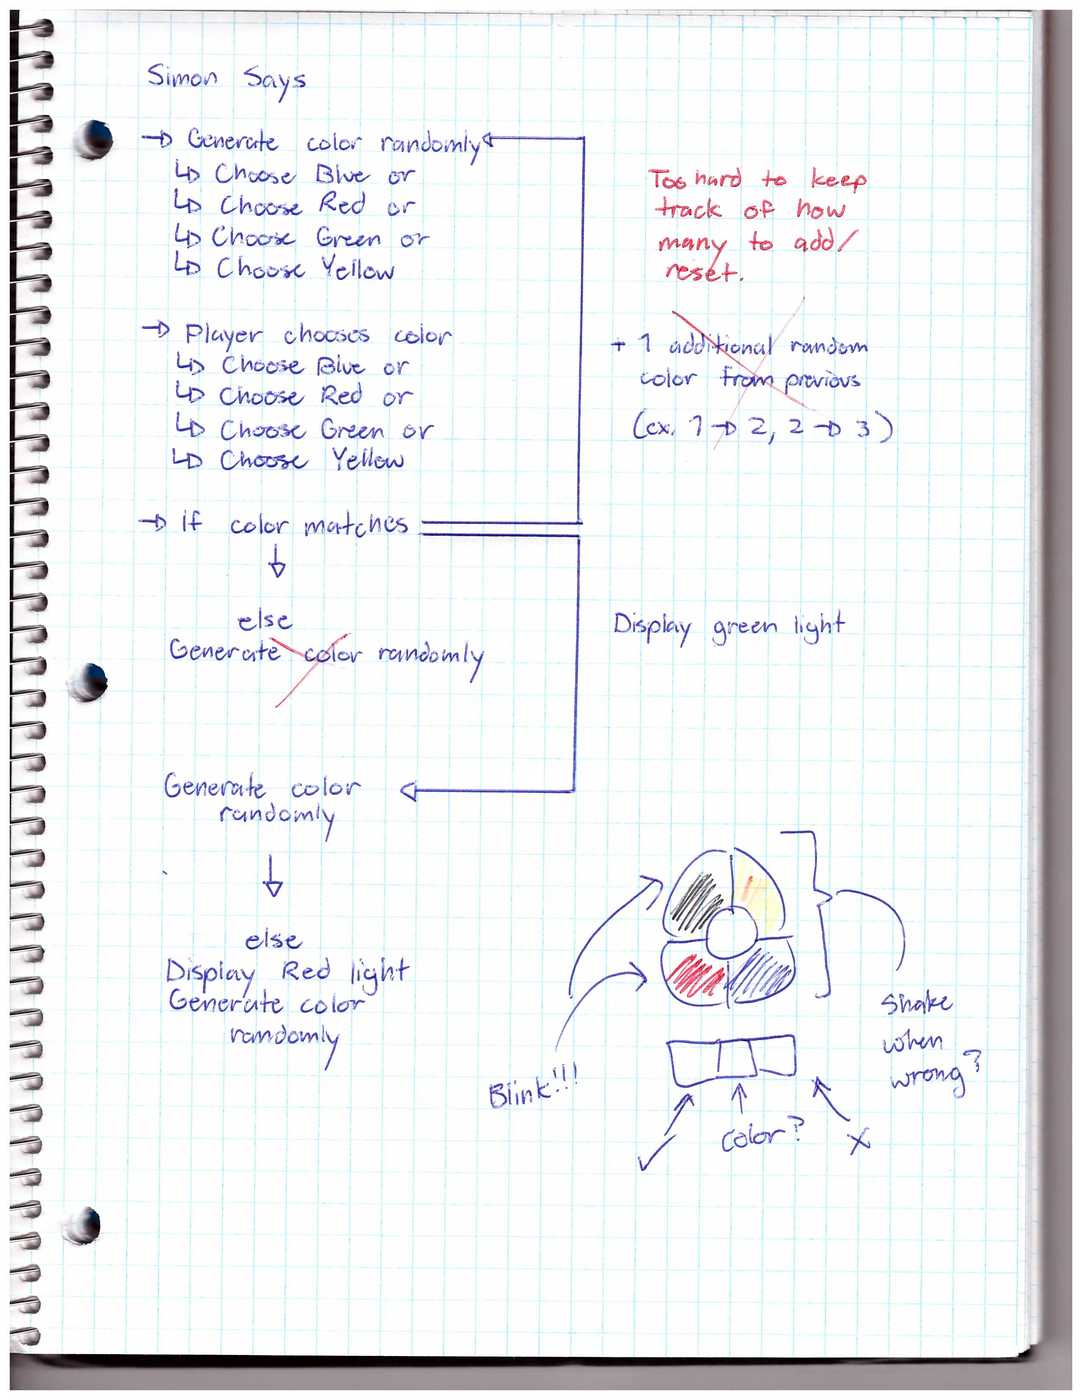 Simon Says
→ Generate color randomly
↳ Choose Blue or
↳ Choose Red or
↳ Choose Green or
↳ Choose Yellow
Too hard to keep
track of how
many to add/
reset.
→ Player chooses color
↳ Choose Blue or
↳ Choose Red or
↳ Choose Green or
↳ Choose Yellow
+ 1 additional random
color from previous
(ex. 1 → 2, 2 → 3)
→ if color matches
else
Generate color randomly
Display green light
Generate color
randomly
else
Display Red light
Generate color
randomly
Blink!!!
Shake
when
wrong?
✓
color?
X